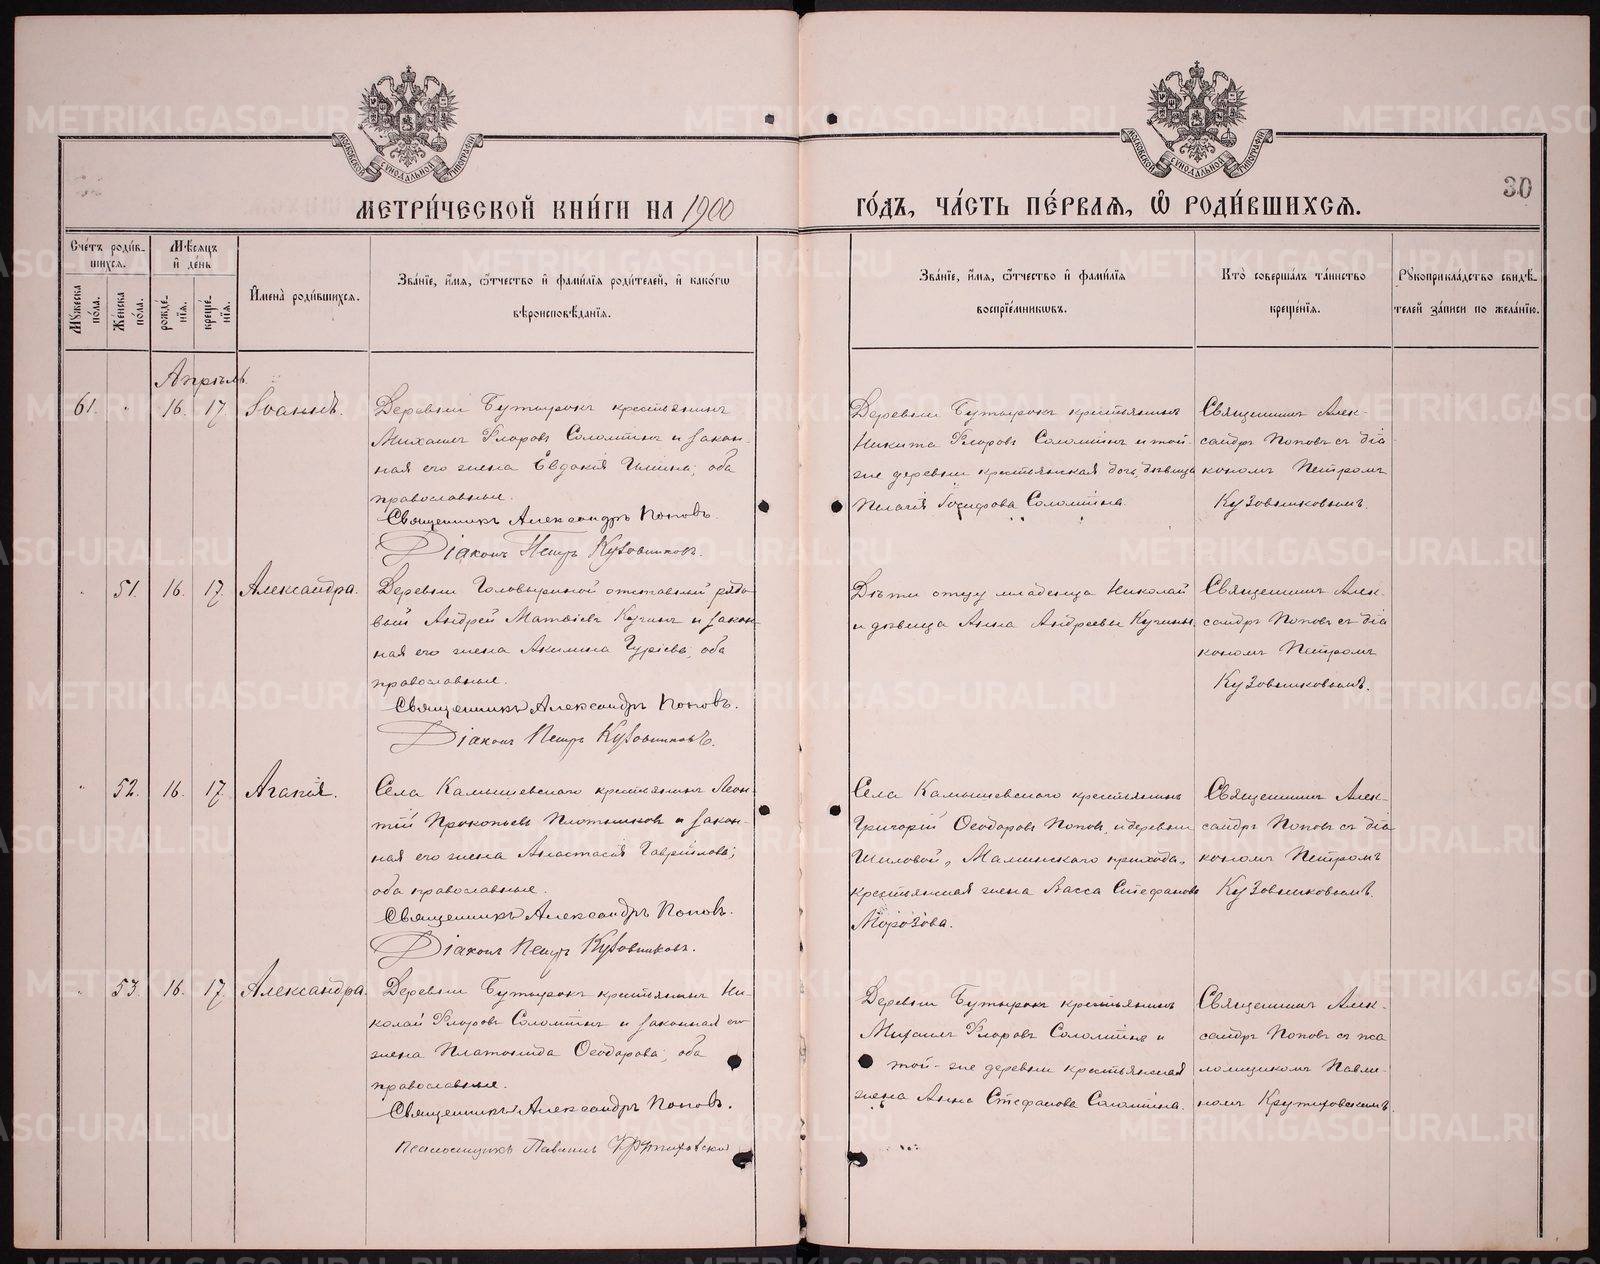 МЕТРИ́ЧЕСКОЙ КНИ́ГИ НА 1900
ГО́ДЪ, ЧА́СТЬ ПЕ́РВАѦ, Ѡ҆ РОДИ́ВШИХСѦ.
30
МОСКОВСКОЙ СѴНОДАЛЬНОЙ ТИПОГРАФІИ
МОСКОВСКОЙ СѴНОДАЛЬНОЙ ТИПОГРАФІИ
Сче́тъ роди́в-
шихсѧ.
Мꙋ́жеска по́ла.
Же́нска по́ла.
Мѣ́сѧцъ
и҆ де́нь
рожде́нїѧ.
креще́нїѧ.
И҆мена̀ роди́вшихсѧ.
Зва́нїе, и҆́мѧ, ѻ҆́тчество и҆ фами́лїѧ роди́телей, и҆ како́гѡ
вѣроисповѣ́данїѧ.
Зва́нїе, и҆́мѧ, ѻ҆́тчество и҆ фами́лїѧ
воспрїе́мникѡвъ.
Кто̀ соверша́лъ та́инство
креще́нїѧ.
Рꙋкоприкла́дство свидѣ́-
телей за́писи по жела́нїю.
Апрѣль.
61. 16. 17. Іоаннъ.
Деревни Бутырокъ крестьянинъ
Михаилъ Флоровъ Соломѣинъ и закон-
ная его жена Евдокія Ильина; оба
православные.
Священникъ Александръ Поповъ.
Діаконъ Петръ Кузовниковъ.
Деревни Бутырокъ крестьянинъ
Никита Флоровъ Соломѣинъ и той-
же деревни крестьянская дочь, дѣвица
Пелагія Іосифова Соломѣина.
Священникъ Алек-
сандръ Поповъ съ діа
кономъ Петромъ
Кузовниковымъ.
51. 16. 17. Александра.
Деревни Головыриной отставный рядо
вый Андрей Матвіевъ Кучинъ и закон-
ная его жена Акилина Гуріева; оба
православные.
Священникъ Александръ Поповъ.
Діаконъ Петръ Кузовниковъ.
Дѣти отцу младенца Николай
и дѣвица Анна Андреевы Кучины.
Священникъ Алек-
сандръ Поповъ съ діа
кономъ Петромъ
Кузовниковымъ.
52. 16. 17. Агапія.
Села Камышевского крестьянинъ Леон-
тій Прокопьевъ Плотниковъ и закон-
ная его жена Анастасія Гавріилова;
оба православные.
Священникъ Александръ Поповъ.
Діаконъ Петръ Кузовниковъ.
Села Камышевского крестьянинъ
Григорій Ѳеодоровъ Поповъ, и деревни
Шиловой, Маминского прихода,
крестьянская жена Васса Стефанова
Морозова.
Священникъ Алек-
сандръ Поповъ съ діа
кономъ Петромъ
Кузовниковымъ.
53. 16. 17. Александра.
Деревни Бутырокъ крестьянинъ Ни-
колай Флоровъ Соломѣинъ и законная его
жена Платонида Ѳеодорова; оба
православные.
Священникъ Александръ Поповъ.
Псаломщикъ Павлинъ Крутиховскій
Деревни Бутырокъ крестьянинъ
Михаилъ Флоровъ Соломѣинъ и
той-же деревни крестьянская
жена Анна Стефанова Соломѣина.
Священникъ Алек-
сандръ Поповъ съ пса
ломщикомъ Павли-
номъ Крутиховскимъ.
METRIKI.GASO-URAL.RU